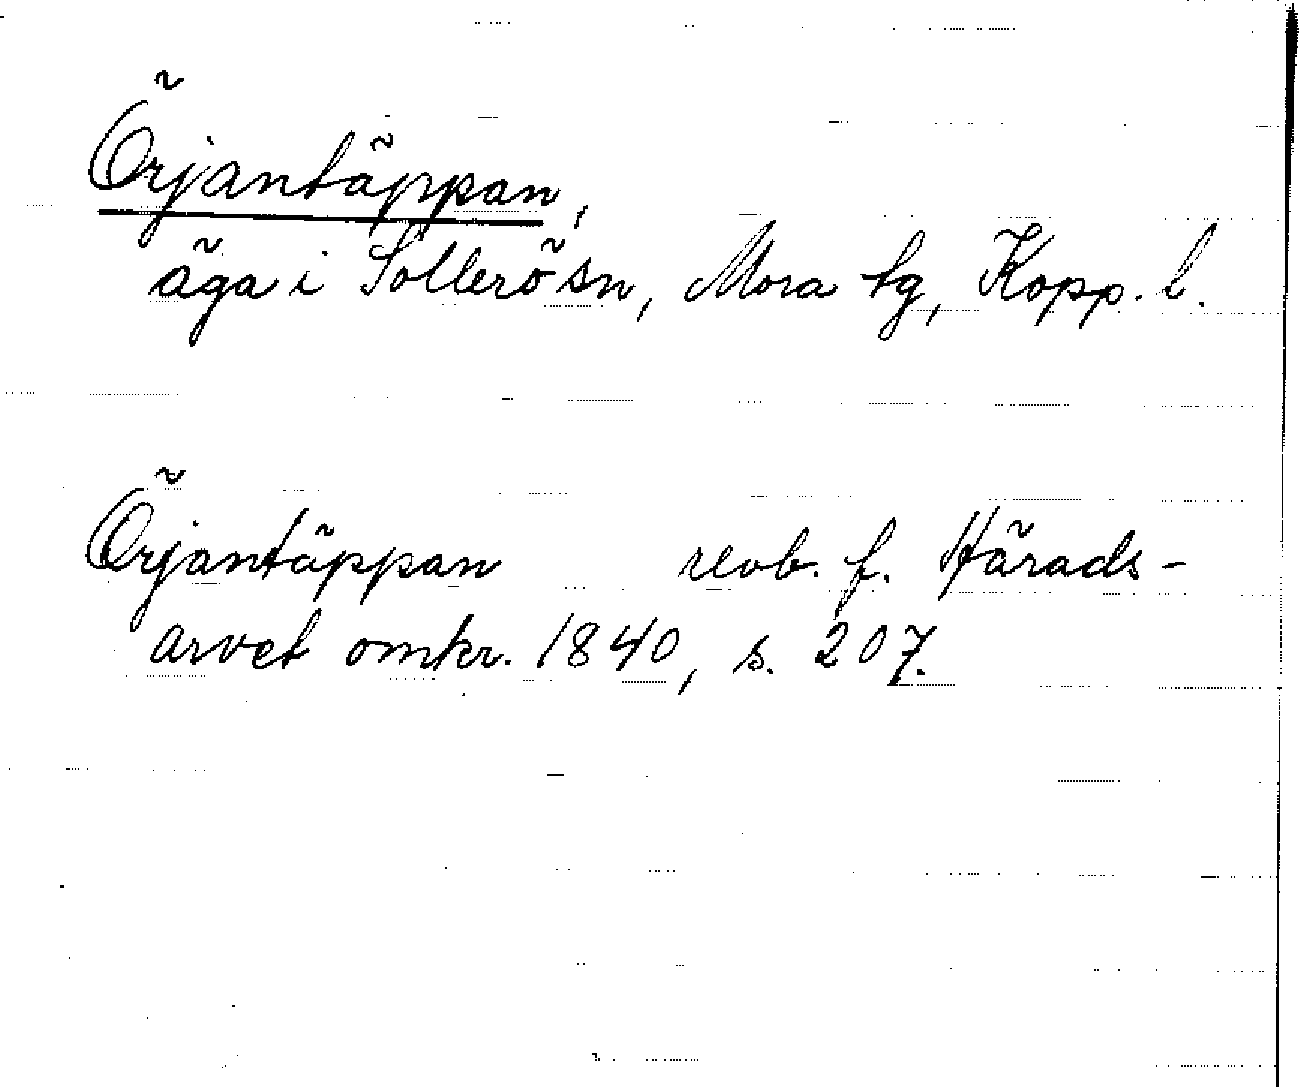 Örjantäppan,
äga i Sollerö sn, Mora tg, Kopp. l.
Örjantäppan revb. f. Härads-
arvet omkr. 1840, s. 207.